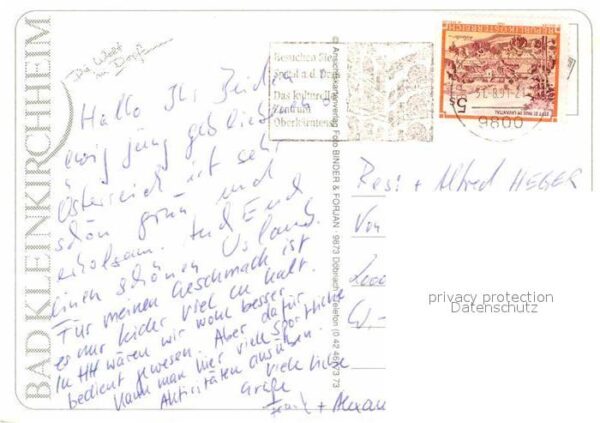 BAD KLEINKIRCHHEIM
Die Welt
im Dorf
Hallo Ihr Beiden
ewig jung gebliebenen
Österreich ist sehr
schön grün und
erholsam. Und Euch
einen schönen Urlaub.
Für meinen Geschmack ist
es nur leider viel zu kalt.
In HH wären wir wohl besser
bedient gewesen. Aber dafür
kann man hier viele sportliche
Aktivitäten ausüben.
Viele liebe
Grüße
Frank + Alexan
© Ansichtskartenverlag Foto BINDER & FORJAN · 9873 Döbriach, Telefon (0 42 46) 73 73
Besuchen Sie
Spittal a. d. Drau
Das kulturelle
Zentrum
Oberkärntens
5 S
REPUBLIK ÖSTERREICH
STIFT ST. PAUL IM LAVANTTAL
9800
Resi + Alfred HEGER
Von
2000
W.-
privacy protection
Datenschutz